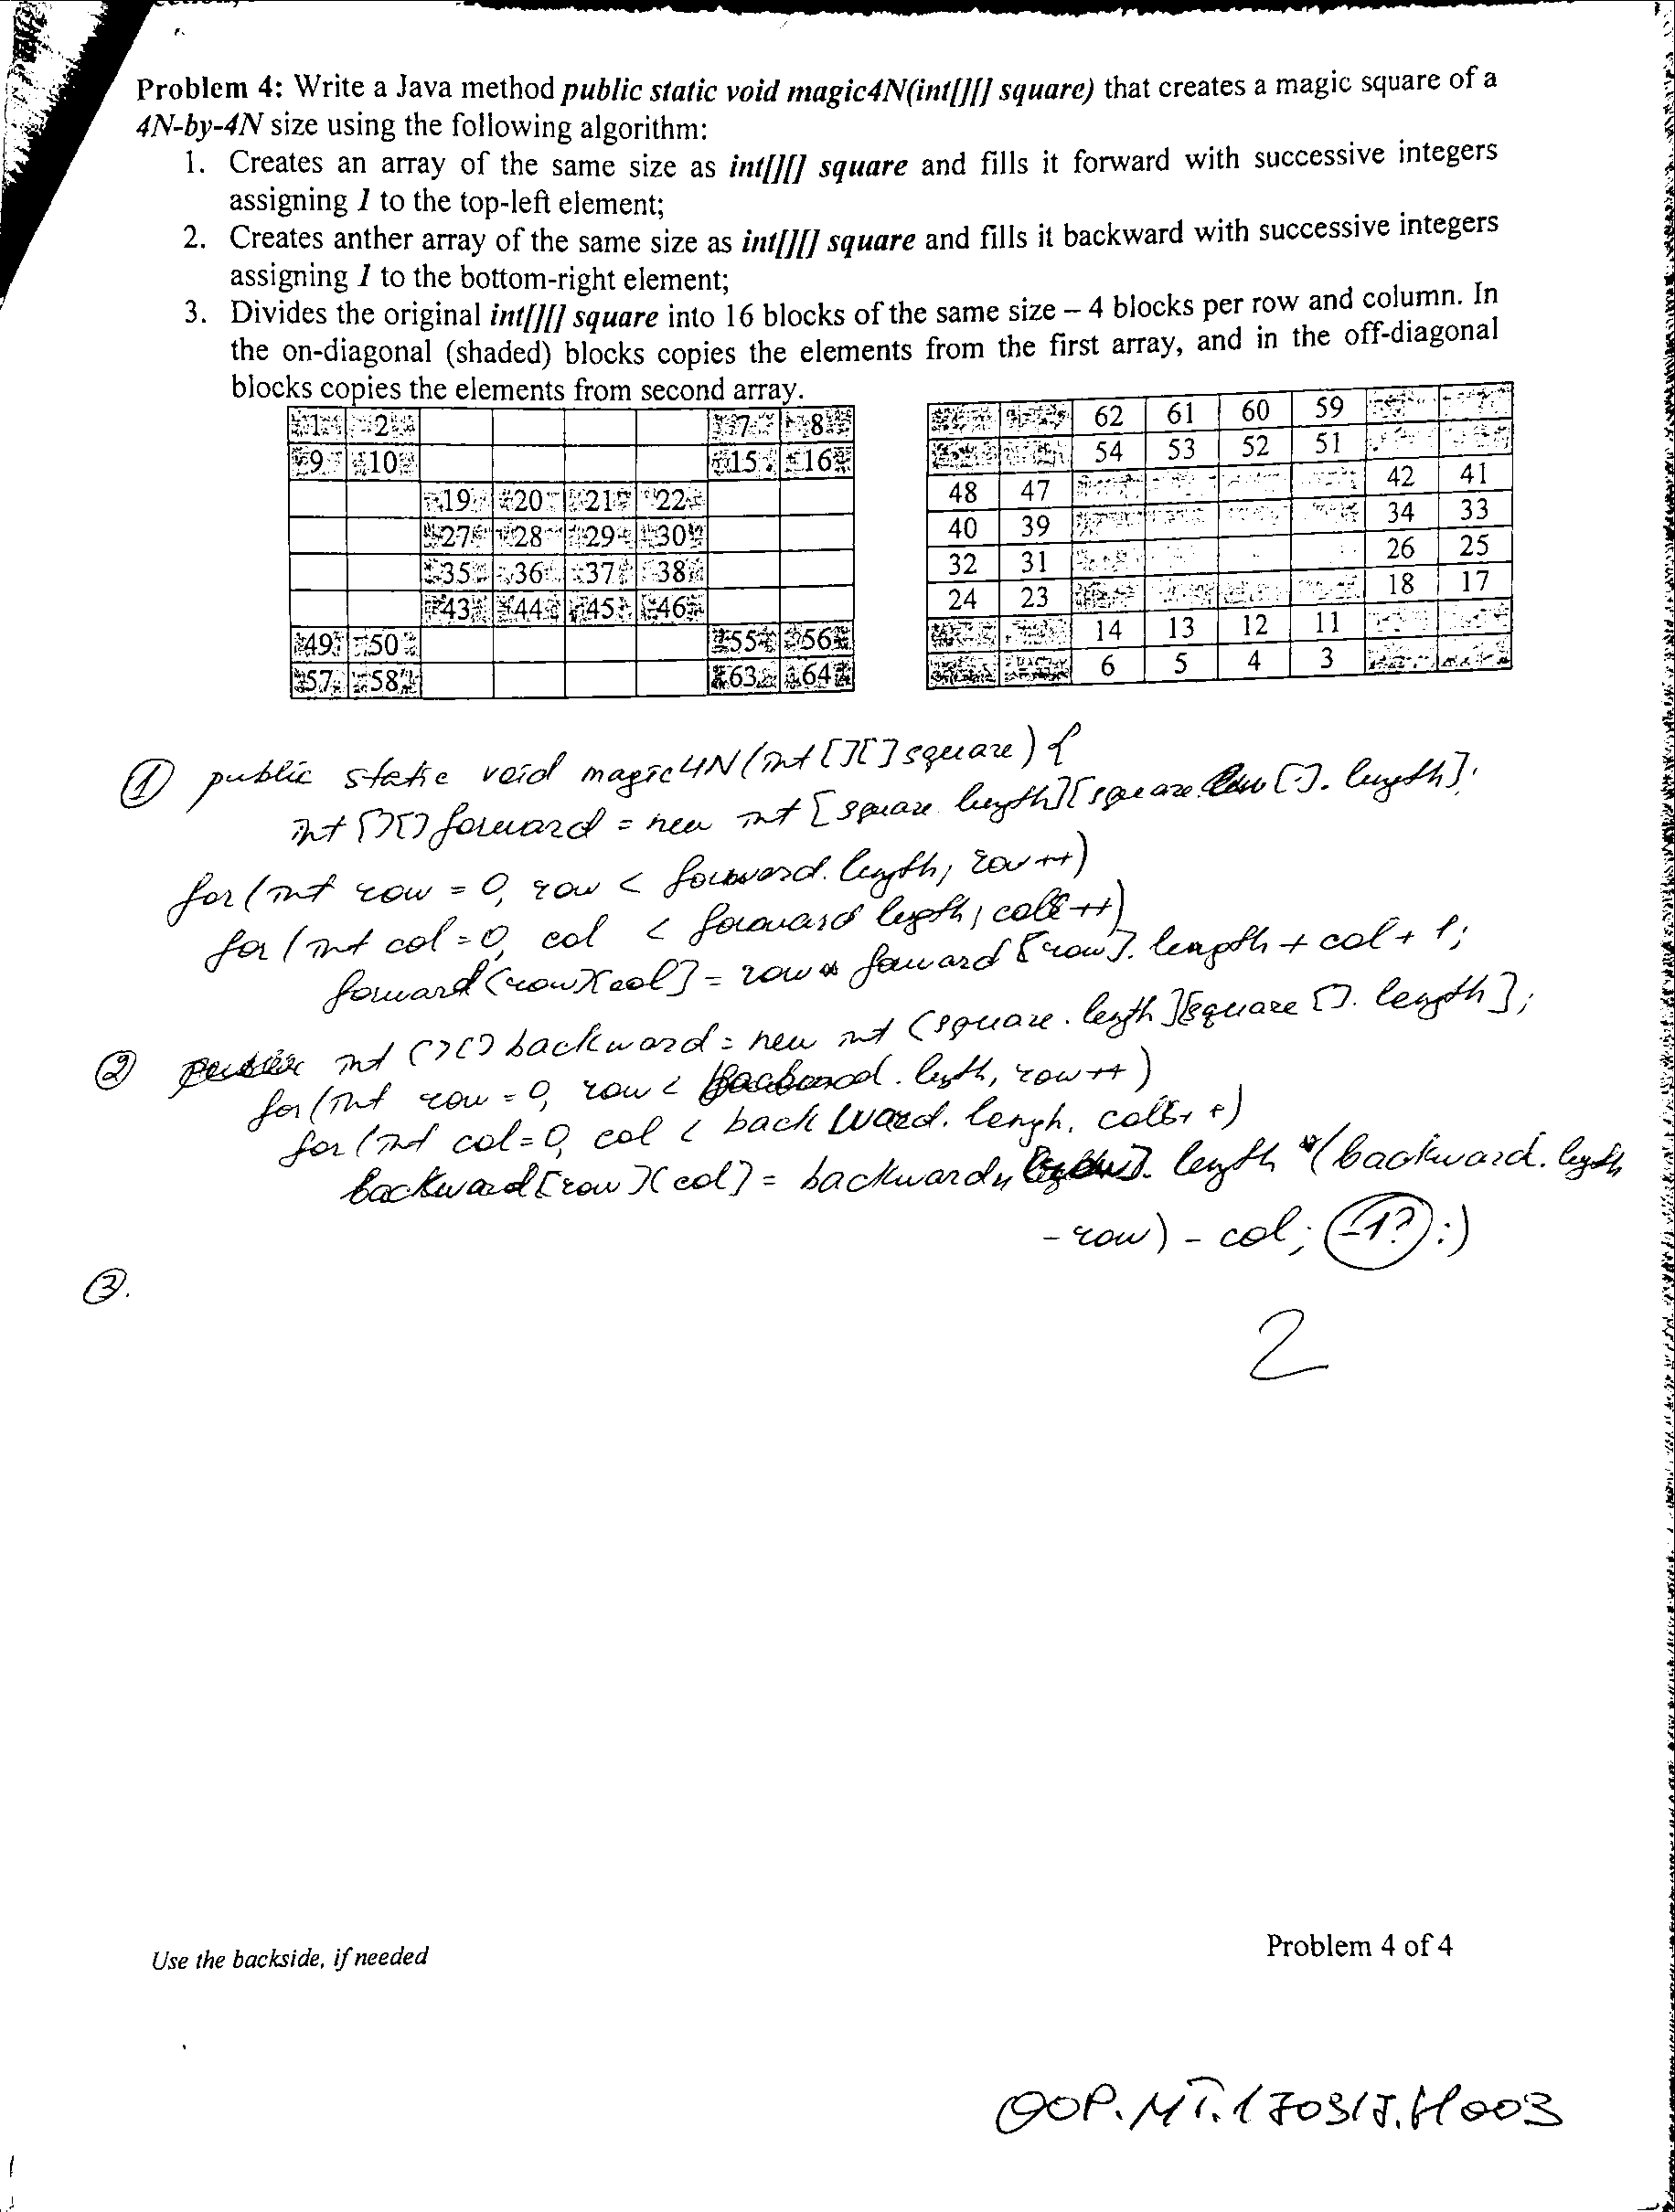 Problem 4: Write a Java method public static void magic4N(int[][] square) that creates a magic square of a
4N-by-4N size using the following algorithm:
1. Creates an array of the same size as int[][] square and fills it forward with successive integers
assigning 1 to the top-left element;
2. Creates anther array of the same size as int[][] square and fills it backward with successive integers
assigning 1 to the bottom-right element;
3. Divides the original int[][] square into 16 blocks of the same size – 4 blocks per row and column. In
the on-diagonal (shaded) blocks copies the elements from the first array, and in the off-diagonal
blocks copies the elements from second array.
1 2 7 8
9 10 15 16
19 20 21 22
27 28 29 30
35 36 37 38
43 44 45 46
49 50 55 56
57 58 63 64
62 61 60 59
54 53 52 51
48 47 42 41
40 39 34 33
32 31 26 25
24 23 18 17
14 13 12 11
6 5 4 3
① public static void magic4N(int[][]square){
int[][]forward = new int[square.length][square[].length];
for(int row = 0, row < forward.length; row++)
for(int col=0, col < forward length; col++)
forward[row][col] = row * forward[row].length + col + 1;
② int[][]backward = new int[square.length][square[].length];
for(int row = 0, row < backward.length, row++)
for(int col=0, col < backward.lengh, col++)
backward[row][col] = backward length *(backward.length
- row) - col; -1? :)
③.
2
Use the backside, if needed
Problem 4 of 4
OOP.MT.170315.H003